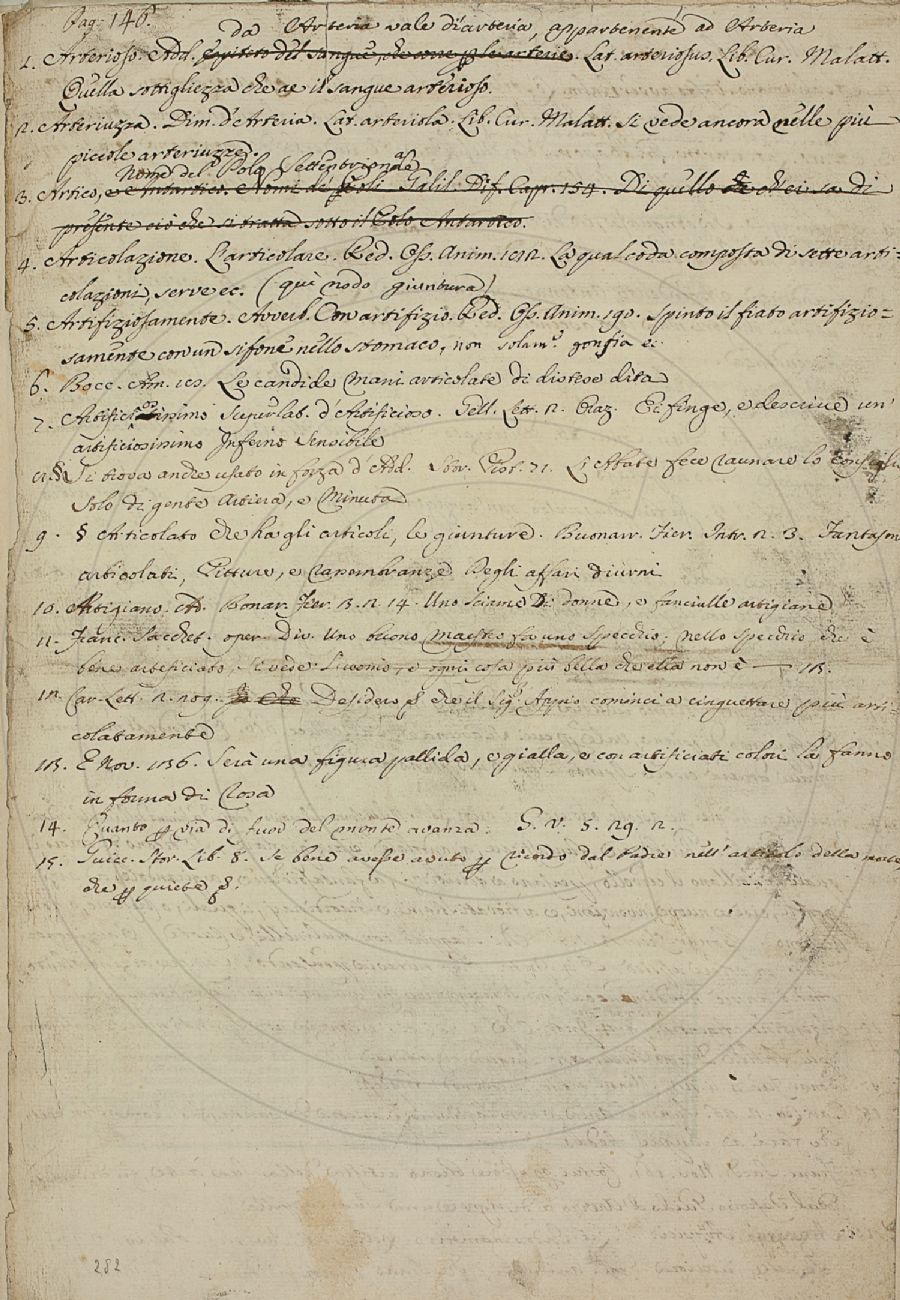 Pag: 146.
da Arteria vale d'arteria, appartenente ad Arteria
1. Arterioso. Add. Epiteto del sangue, che corre p le arterie. Lat. arteriosus. Lib. Cur. Malatt.
Quella sottigliezza che ae il sangue arterioso.
2. Arteriuzza. Dim. d'Arteria. Lat. arteriola. Lib. Cur. Malatt. Si vede ancora nelle più
piccole arteriuzze.
Nome del Polo Settentrionale
3. Artico, e Antartico. Nomi dei Poli. Galil. Dif. Capr. 154. Di quello che ci sa di
presente ciò che si tratta sotto il Polo Antartico.
4. Articolazione. L'articolare. Red. Oss. Anim. La qual coda composta di sette arti=
colazioni, serve ec. (qui nodo giuntura)
5. Artifiziosamente. Avverb. Con artifizio. Red. Oss. Anim. 190. Spinto il fiato artifizio=
samente con un sifone nello stomaco, non solam. gonfia
6. Bocc. Am. Le candide mani articolate di distese dita
7. Superlat. d'Artificioso. Gell. Lett. 2. Ei finge, e descrive un'
artificiosissimo Inferno Sensibile
§. Si trova anche usato in forza d'Add. Stor. Pist. 71. L'Abbate fece raunare lo consiglio
solo di gente Artiera, e Minuta
9. § Articolato che ha gli articoli, le giunture. Buonarr. Fier. Intr. 2. 3. Fantasmi
articolati, Pitture, e rapembranze Degli affari diurni
10. Artigiano. Ad. Bonar. Fier. 3. 2. 14. Uno sciame Di donne, e fanciulle artigiane
11. Franc. Sacchet. oper. Div. Uno buono maestro fa uno specchio; nello specchio, che è
bene arteficiato, si vede l'uomo, e ogni cosa più bella che ella non è — 113.
12. Car. Lett. 2. 209. Desidero p che il Sig. Appio cominci a cinguettare più arti=
colatamente
113. E Nov. 1136. Serà una figura pallida, e gialla, e con artificiati colori la fanno
in forma di rosa
14. Quanto p via di fuor del monte avanza. G. V. 5. 29. 2.
15. Guicc. Stor. Lib. 8. Se bene avesse avuto p ricordo dal Padre nell'articolo della morte
che p quiete
282